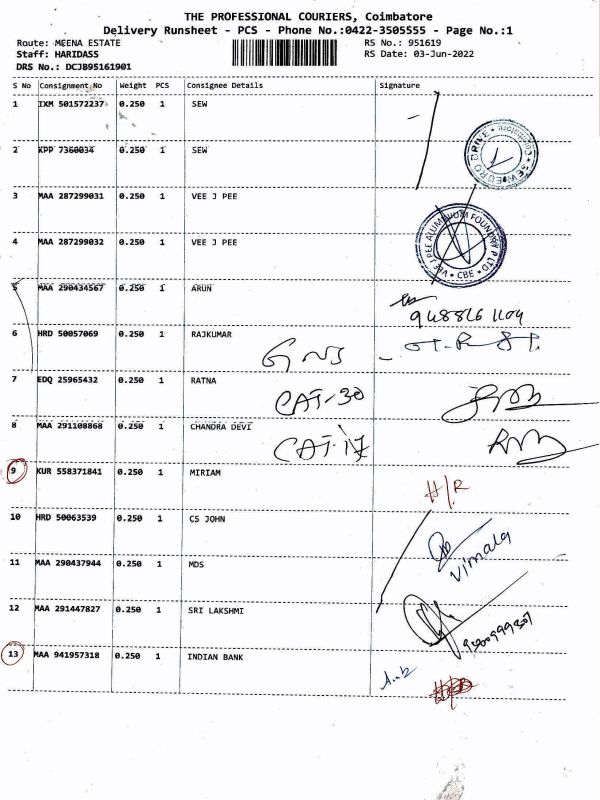 THE PROFESSIONAL COURIERS, Coimbatore
Delivery Runsheet - PCS - Phone No.:0422-3505555 - Page No.:1
Route: MEENA ESTATE
RS No.: 951619
Staff: HARIDASS
RS Date: 03-Jun-2022
DRS No.: DCJB95161901
S No Consignment No Weight PCS Consignee Details Signature
1 IXM 501572237 0.250 1 SEW
2 KPP 7360034 0.250 1 SEW
3 MAA 287299031 0.250 1 VEE J PEE
VEE J PEE ALUMINIUM FOUNDRY P LTD CBE
4 MAA 287299032 0.250 1 VEE J PEE
5 MAA 290434567 0.250 1 ARUN
6 HRD 50057069 0.250 1 RAJKUMAR
7 EDQ 25965432 0.250 1 RATNA CAT-30
8 MAA 291108868 0.250 1 CHANDRA DEVI CAT-17
9 KUR 558371841 0.250 1 MIRIAM
H/R
10 HRD 50063539 0.250 1 CS JOHN
Vimala
11 MAA 290437944 0.250 1 MDS
12 MAA 291447827 0.250 1 SRI LAKSHMI
13 MAA 941957318 0.250 1 INDIAN BANK